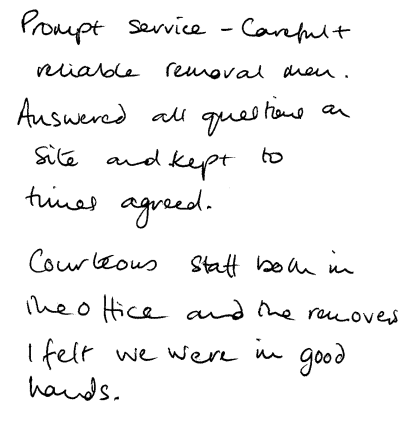 Prompt service - Careful +
reliable removal men.
Answered all questions on
site and kept to
times agreed.
Courteous staff both in
the office and the removers
I felt we were in good
hands.